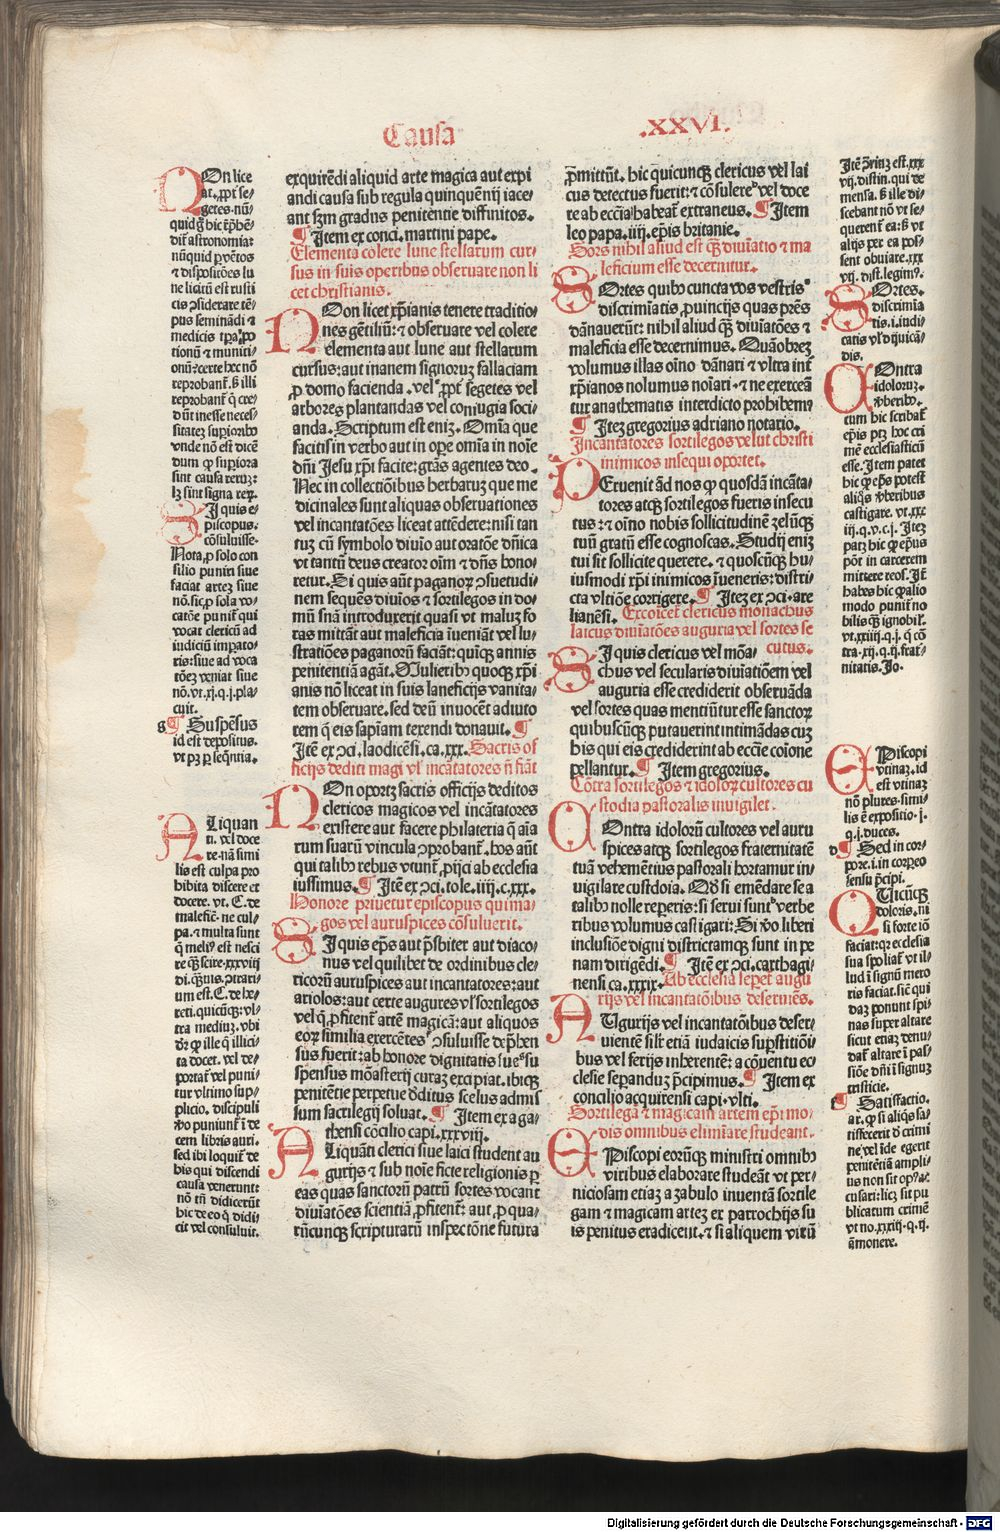 Causa
.XXVI.
NOn lice
at. xp̄i se⸗
getes. nū⸗
quid ḡ hic rep̄hē⸗
dit̄ astronomia:
nūquid p̱ vētos
⁊ dispositōes lu
ne licitū est rusti
cis ꝯsiderare tē⸗
pus seminādi ⁊
medicis
tionū ⁊ muniti⸗
onū: certe hec nō
reprobant̄. ß illi
reprobant̄ qͥ cre⸗
dūt inesse neces⸗
sitatez superiorib⁹
vnde nō est dicē
dum ꝙ superiora
sint causa rerum:
lꝫ sint signa reꝝ.
SI quis e⸗
piscopus.
cōsuluisse.
Nota, ꝓ solo con
silio punin siue
faciat artez siue
nō. sic, ꝓ sola vo⸗
catōe punit̄ qui
vocat clericū ad
iudiciū imperato
ris: siue ad voca
tōez veniat siue
nō. vt. xj. q. j. pla⸗
cuit.
g ¶ Suspēsus
id est depositus.
vt pꝫ p̱ seqn̄tia.
ALiquan
ti. vel doce
re. nā simi
lis est culpa pro
hibita discere et
docere. vt. C. de
malefi. ne cul⸗
pa. ⁊ multa sunt
q̄ meliꝰ est nesci
re qꝫ scire. xxxviij
di. qͣuis. ꝯtrari⸗
um est. C. de he⸗
reti. quicūqꝫ: vl⸗
tra mediuꝫ. vbi
dr̄ ꝙ ille q̄ illici⸗
ta docet. vel de⸗
portat̄ vel puni⸗
tur vltimo sup⸗
plicio. discipuli
v̓o puniunt̄ ī de
cem libris auri.
sed ibi loquit̄ de
his qui discendi
causa venerunt:
nō tn̄ didicerūt
hic de eo q̄ didi⸗
cit vel consuluit.
exquirēdi aliquid arte magica aut expi
andi causa sub regula quinquēnij iace⸗
ant ẜm gradus penitentie diffinitos.
¶ Item ex conci. martini pape.
Elementa colere lune stellarum cur⸗
sus in suis operibus obseruare non li
cet christianis.
NOon licet xp̄ianis tenere traditio⸗
nes gētiliū: ⁊ obseruare vel colere
elementa aut lune aut stellarum
cursus: aut inanem signoruꝫ fallaciam
ꝓ domo facienda. vel ꝓpt̄ segetes vel
arbores plantandas vel coniugia soci⸗
anda. Scriptum est eniꝫ. Om̄ia que
facitis in verbo aut in oꝑe om̄ia in noīe
dn̄i Jesu xp̄i facite: grās agentes deo.
Nec in collectiōibus herbaruꝫ que me
dicinales sunt aliquas obseruationes
vel incantatōes liceat attēdere: nisi tan
tuꝫ cū symbolo diuīo aut oratōe dn̄ica
vt tantū deus creator oīm ⁊ dn̄s hono⸗
retur. Si quis aūt paganoꝝ ꝯsuetudi⸗
nem sequēs diuīos ⁊ sortilegos in do⸗
mū suā introduxerit quasi vt maluꝫ fo
ras mittāt aut maleficia īueniāt vel lu⸗
stratiōes paganorū faciāt: quīqꝫ annis
penitentiā agāt. Mulieribꝰ quoqꝫ xp̄i
anis nō liceat in suis laneficijs vanita⸗
tem obseruare. sed deū inuocēt adiuto
rem q̄ eis sapiam texendi donauit. ¶
Jtē ex ꝯci. laodicēsi. ca. xxx. Sacris of
ficijs dediti magi vl̓ incātatores n̄ fiāt
NOn oportꝫ sacris officijs deditos
clericos magicos vel incātatores
existere aut facere philateria q̄ aīa
rum suarū vincula ꝯprobant̄. hos aūt
qui talibꝰ rebus vtunt̄. ꝓijci ab ecclesia
iussimus. ¶ Jtē ex ꝯci. tole. iiij. c. xxx.
Honore priuetur episcopus qui ma⸗
gos vel auruspices cōsuluerit.
SI quis ep̄s aut p̄sbiter aut diaco⸗
nus vel quilibet de ordinibus cle⸗
ricorū auruspices aut incantatores: aut
ariolos: aut certe augures vl̓ sortilegos
vel q̄, ꝓfitent̄ artē magicā: aut aliquos
eoꝝ similia exercētes ꝯsuluisse dep̄hen
sus fuerit: ab honore dignitatis sue su⸗
spensus mōasterij curaꝫ excipiat. ibiqꝫ
penitētie perpetue dēditus scelus admis
sum sacrilegij soluat. ¶ Item ex aga⸗
thensi cōcilio capi. xxxviij.
ALiquāti clerici siue laici student au
gurijs ⁊ sub noīe ficte religionis p̱
eas quas sanctorū patrū sortes vocant
diuiatōes scientiā, ꝓfitent̄: aut, ꝓ qua⸗
rūcunqꝫ scripturarū inspectōne futura
ꝓmittūt. hic quicunqꝫ clericus vel lai
cus detectus fuerit: ⁊ cōsulere vel doce
re ab eccīa habeat̄ extraneus. ¶ Item
leo papa. iiij. ep̄is britanie.
Sors nihil aliud est qꝫ diuīatio ⁊ ma
leficium esse decernitur.
SOrtes quibꝰ cuncta vos vestris
discrimiatis, ꝓuincijs quas prēs
dānauerūt: nihil aliud qꝫ diuīatōes ⁊
maleficia esse decernimus. Quāobreꝫ
volumus illas oīno dānari ⁊ vltra int̄
xp̄ianos nolumus noīari. ⁊ ne exerceā
tur anathematis interdicto prohibemꝰ
¶ Jteꝫ gregorius adriano notario.
Incantatores sortilegos velut christi
inimicos insequi oportet.
PEruenit ad nos ꝙ quosdā incāta⸗
tores atqꝫ sortilegos fueris insecu
tus: ⁊ oīno nobis sollicitudinē zelūqꝫ
tuū gratū esse cognoscas. Studij eniꝫ
tui sit sollicite querere. ⁊ quoscūqꝫ hu⸗
iusmodi xp̄i inimicos īueneris: distri⸗
cta vltiōe corrigere. ¶ Jteꝫ ex ꝯci. are
lianēsi. Excoīcet̄ clericus monachus
laicus diuīatōes auguria vel sortes se
cutus.
SI quis clericus vel mōa⸗
chus vel secularis diuīatiōem vel
auguria esse crediderit obseruāda
vel sortes quas mentiūtur esse sanctoꝝ
quibuscūqꝫ putauerint intimādas cuꝫ
his qui eis crediderint ab eccīe coīone
pellantur. ¶ Item gregorius.
Cōtra sortilegos ⁊ idoloꝝ cultores cu
stodia pastoralis inuigilet.
COntra idolorū cultores vel auru
spices atqꝫ sortilegos fraternitatē
tuā vehemētius pastorali hortamur in⸗
uigilare custodia. Qd̓ si emēdare se a
talibꝰ nolle reperis: si serui sunt verbe
ribus cruciatibusqꝫ castigari: Si v̓o liberi
inclusiōe digni districtamqꝫ sunt in pe
nam dirigēdi. ¶ Jtē ex ꝯci. carthagi⸗
nensi ca. xxxix. Ab ecclesia sepet̄ augu
rijs vel incantatōibus deseruiēs.
AUgurijs vel incantatōibus deser⸗
uientē sil̓r etiā iudaicis suꝑstitiōi⸗
bus vel ferijs inherentē: a cōuentu ec
clesie separanduꝫ p̄cipimus. ¶ Item ex
concilio acquirensi capi. vlti.
Sortilegā ⁊ magicam artem ep̄i mo⸗
dis omnibus elimīare studeant.
EPiscopi eorūqꝫ ministri omnibꝰ
viribus elaborare studeāt vt per⸗
niciosam etiaꝫ a zabulo inuentā sortile
gam ⁊ magicam arteꝫ ex parrochijs su
is penitus eradicent. ⁊ si aliquem virū
Jtē p̄rinꝫ est. xxx
vij. distin. qui de
mensa. ß ille di⸗
scebant nō vt se⸗
querent̄ ea: ß vt
alijs per ea pos⸗
sent obuiare. xxx
vij. dist. legimꝰ.
SOrtes.
discrimīa
tis. i. iudi⸗
catis vl̓ diiudicā⸗
dis.
COntra
idoloruꝫ.
v̓beribꝰ.
cum hic scribat̄
ep̄is ptꝫ hoc cri
mē ecclesiasticū
esse. Item patet
hic ꝙ ep̄s potest
aliqͦs v̓beribus
castigare. vt. xx
iij. q. v. c. j. Jteꝫ
patꝫ hic ꝙ ep̄us
pōt in carcerem
mittere reos. Jt̄
habes hic ꝙ alio
modo punit̄ no
bilis qꝫ ignobil̓.
vt. xxiiij. q. j. q cō
tra. xij. q. ij. frat̓⸗
nitatis. Jo.
EPiscopi
vtinaꝫ. id
est vtinaꝫ
nō plures. simi⸗
lis ē expositio. j.
q. j. duces.
d ¶ Sed in cor⸗
pore. i. in corꝑeo
sensu p̄cipi.
QUicūqꝫ
doloris. ni
si forte iō
faciat: qꝛ ecclesia
sua spoliat̄ vt il⸗
lud ī signū mero
ris faciat. sic̄ qui
daꝫ ponunt spi⸗
nas super altare
sicut etiaꝫ denu⸗
dat̄ altare ī pas⸗
siōe dn̄i ī signuꝫ
tristicie.
e ¶ Satisfactio.
ar. ꝙ si aliqͥs sa⸗
tiffecerit d̓ crimi
ne vel īde egerit
penitētiā ampli⸗
us non sit
cusari: licꝫ sit pu
blicatum crimē
vt no. xxiij. q. ij.
āmonere.
Digitalisierung gefördert durch die Deutsche Forschungsgemeinschaft - DFG